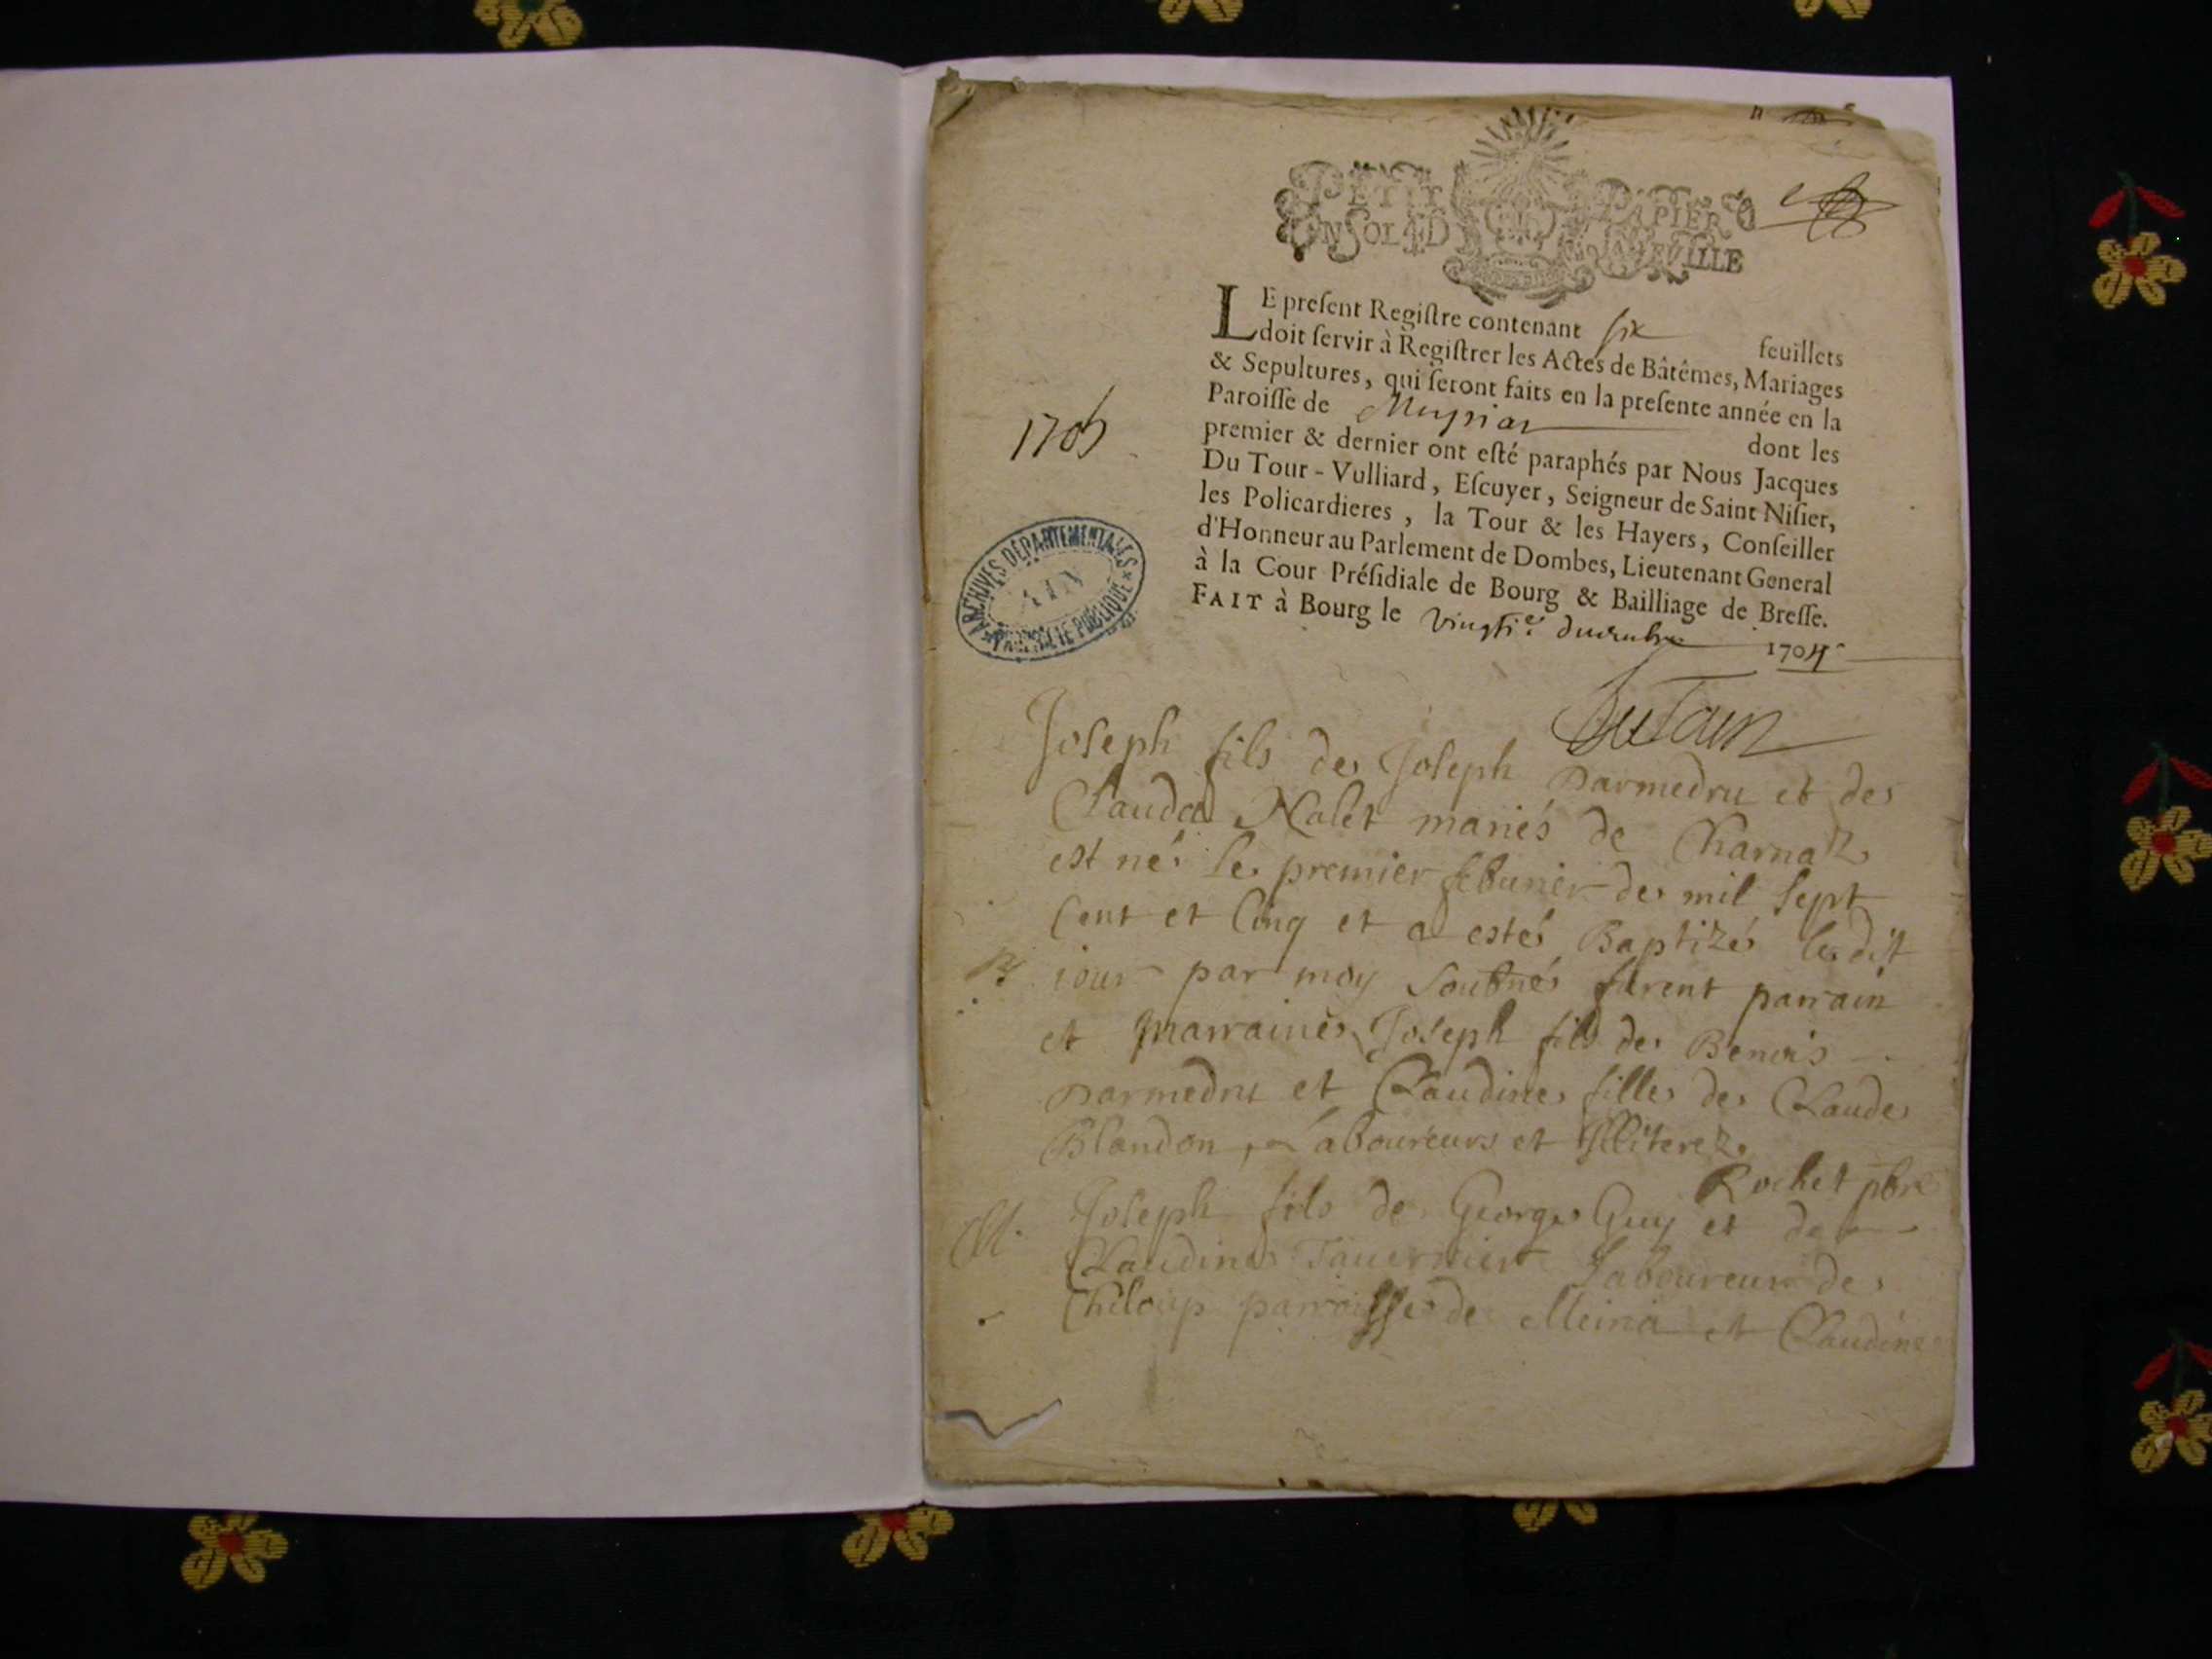 PETIT PAPIER
UN SOL 4D LA FEUILLE
LE preſent Regiſtre contenant ſix feuillets
doit ſervir à Regiſtrer les Actes de Bâtêmes, Mariages
& Sepultures, qui ſeront faits en la preſente année en la
Paroiſſe de dont les
premier & dernier ont eſté paraphés par Nous Jacques
Du Tour-Vulliard, Eſcuyer, Seigneur de Saint Niſier,
les Policardieres, la Tour & les Hayers, Conſeiller
d'Honneur au Parlement de Dombes, Lieutenant General
à la Cour Préſidiale de Bourg & Bailliage de Breſſe.
FAIT à Bourg le vingtie. 1704
1705
ARCHIVES DÉPARTEMENTALES
AIN
PROPRIÉTÉ PUBLIQUE
DuTour
Joseph fils de Joseph parmedru et de
Clauda Nalet mariés de Charnaz
est né le premier febvrier de mil sept
cent et cinq et a esté Baptizé le dit
B iour par moy soubné furent parrain
et marraine Joseph fils de Benois
parmedru et Claudine fille de Claude
Blandon, laboureurs et Illiterez.
Rochet pbre
M. Joseph fils de George Guy et de
Claudine Tavernier laboureur de
Chiloup parroisse de et Claudine